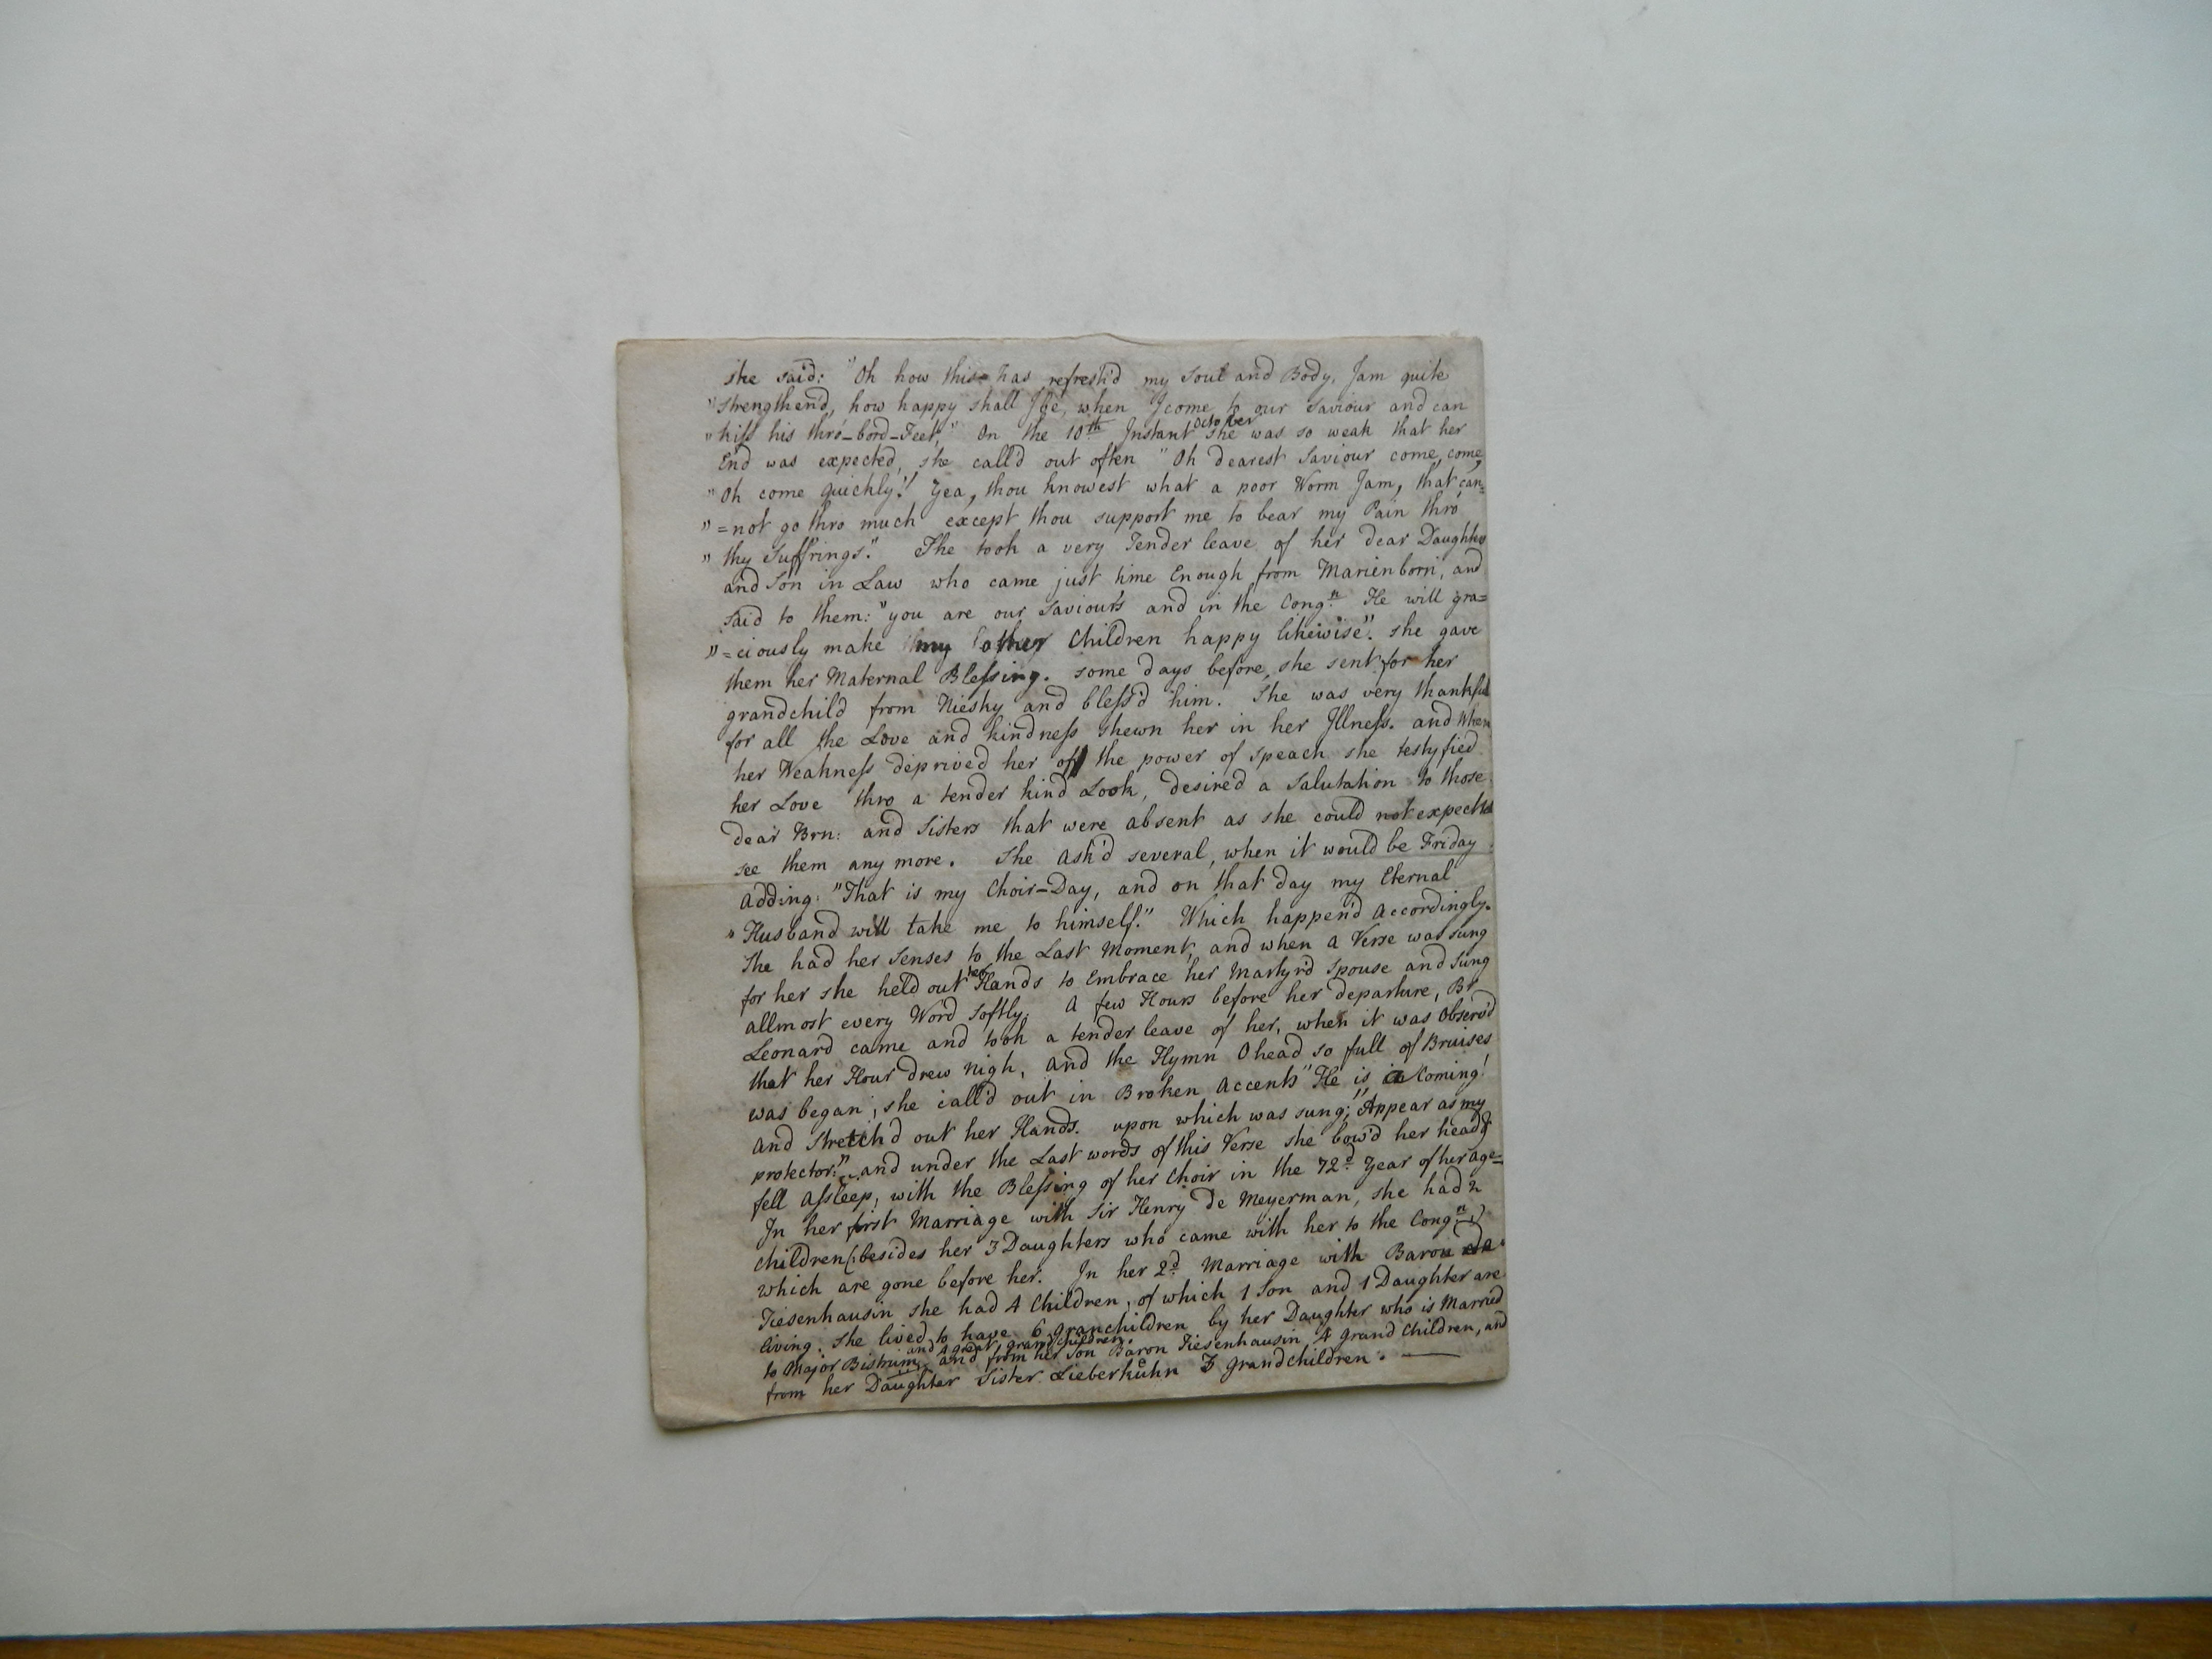 she said: "Oh how this has refresh'd my Soul and Body, Jam quite
"strengthen'd, how happy shall J be, when J come to our Saviour and can
"kiss his thro-bord-Feet," On the 10th Instant October she was so weak that her
End was expected, she call'd out often "Oh dearest Saviour come, come,
"Oh come quickly!" Yea, thou knowest what a poor Worm Jam, that can=
"=not go thro much except thou support me to bear my Pain thro
"thy Suffrings." She took a very Tender leave of her dear Daughter
and Son in Law who came just time Enough from Marienborn, and
said to them: "you are our Saviours and in the Congn. He will gra=
"=ciously make my other Children happy likewise". she gave
them her Maternal Blessing. some days before, she sent for her
grandchild from Niesky and bless'd him. She was very thankful
for all the Love and kindness shewn her in her Jllness. and when
her Weakness deprived her of the power of speach she testyfied
her Love thro a tender kind Look, desired a Salutation to those
dear Brn: and Sisters that were absent as she could not expect to
see them any more. She ask'd several, when it would be Friday
adding: "That is my Choir-Day, and on that day my Eternal
"Husband will take me to himself." Which happen'd accordingly.
She had her Senses to the Last Moment, and when a Verse was sung
for her she held out her Hands to Embrace her Martyr'd Spouse and sung
allmost every Word softly. A few Hours before her departure, Br
Leonard came and took a tender leave of her, when it was Observ'd
that her Hour drew nigh, and the Hymn O head so full of Bruises
was began, she call'd out in Broken Accents "He is Coming!
and stretch'd out her Hands. upon which was sung; "Appear as my
protector." and under the Last words of this Verse she bow'd her head &
fell assleep, with the Blessing of her Choir in the 72d Year of her age=
In her first Marriage with Sir Henry de Meyerman, she had 2
Children (besides her 3 Daughters who came with her to the Congn.)
which are gone before her. In her 2d Marriage with Baron
Tiesenhausin she had 4 Children, of which 1 Son and 1 Daughter are
living. She lived to have 6 granchildren by her Daughter who is Married
to Major Bistrum, and 4 great grandchildren. and from her Son Baron Tiesenhausin 4 grand Children, and
from her Daughter Sister Lieberkühn 3 grandchildren. —